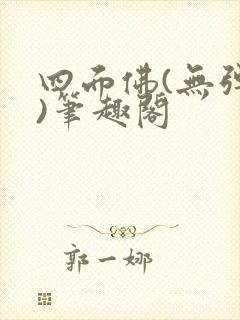 四而佛(無弹
)筆趣閣
郭一娜